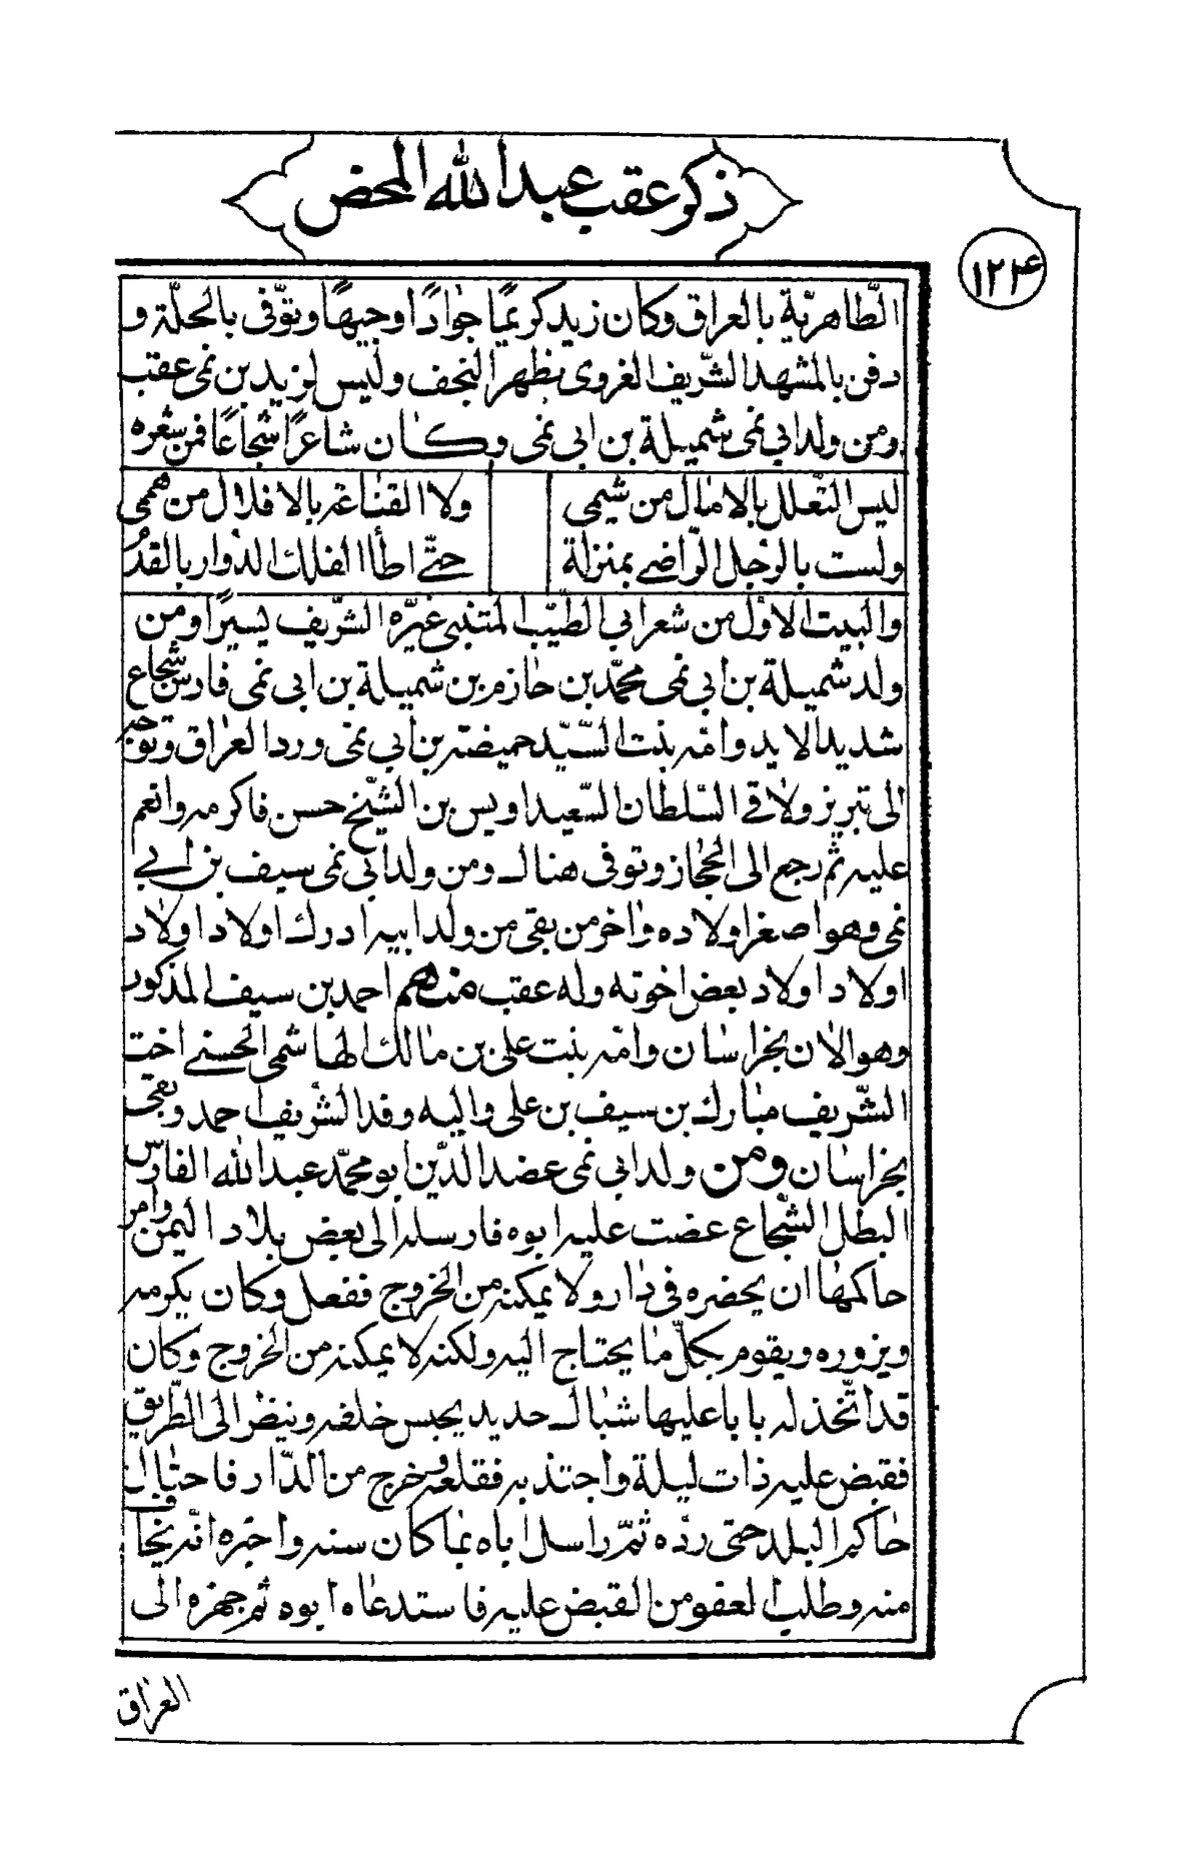 ذكر عقب عبد الله المحض
١٢٤
الطّاهريّة بالعراق وكان زيد كريمًا جوادًا وجيهًا وتوّفى بالحلّة و
دفن بالمشهد الشّريف الغروى بظهر النجف وليس لزيد بن نمى عقب
ومن ولد ابي نمى شميلة بن ابى نمى وكان شاعرًا شجاعًا فمن شعره
ليس التعلل بالامال من شيمى ولا القناعة بالاقلال من هممى
ولست بالرّجل الرّاضے بمنزلة حتّے اطأ الفلك الدوار بالقدم
والبيت الاوّل من شعر ابي الطيّب المتنبى غيّره الشّريف يسيرًا ومن
ولد شميلة بن ابي نمى محمّد بن حازم بن شميلة بن ابى نمى فارس شجاع
شديد الايد وامّه بنت السّيّد حميضة بن ابي نمى ورد العراق وتوجه
الى تبريز ولاقے السّلطان السّعيد اويس بن الشّيخ حسن فاكرمه وانعم
عليه ثم رجع الى الحجاز وتوفى هناك ومن ولد ابى نمى سيف بن ابے
نمى وهو اصغر اولاده واخر من بقى من ولد ابيه ادرك اولاد اولاد
اولاد اولاد بعض اخوته وله عقب منهم احمد بن سيف المذكور
وهو الان بخراسان وامّه بنت على بن مالك الهاشمى الحسنے اخت
الشّريف مبارك بن سيف بن على واليه وفد الشّريف احمد وبقى
بخراسان ومن ولد ابى نمى عضد الدّين ابو محمّد عبد الله الفارس
البطل الشّجاع عضت عليه ابوه فارسله الى بعض بلاد اليمن وامر
حاكمها ان يحضره فى دار ولا يمكنه من الخروج ففعل وكان يكرمه
ويزوره ويقوم بكلّ ما يحتاج اليه ولكنه لا يمكنه من الخروج وكان
قد اتّخذ له بابا عليها شباك حديد يحبس خلفه وينظر الى الطّريق
فقبض عليه ذات ليلة واجتذبه فقلعه وخرج من الدّار فاحتال
حاكم البلد حتى ردّه ثمّ راسل اباه بما كان منه واخبره انّه يخاف
منه وطلب العفو من القبض عليه فاستدعاه ابوه ثم جهزه الى
العراق